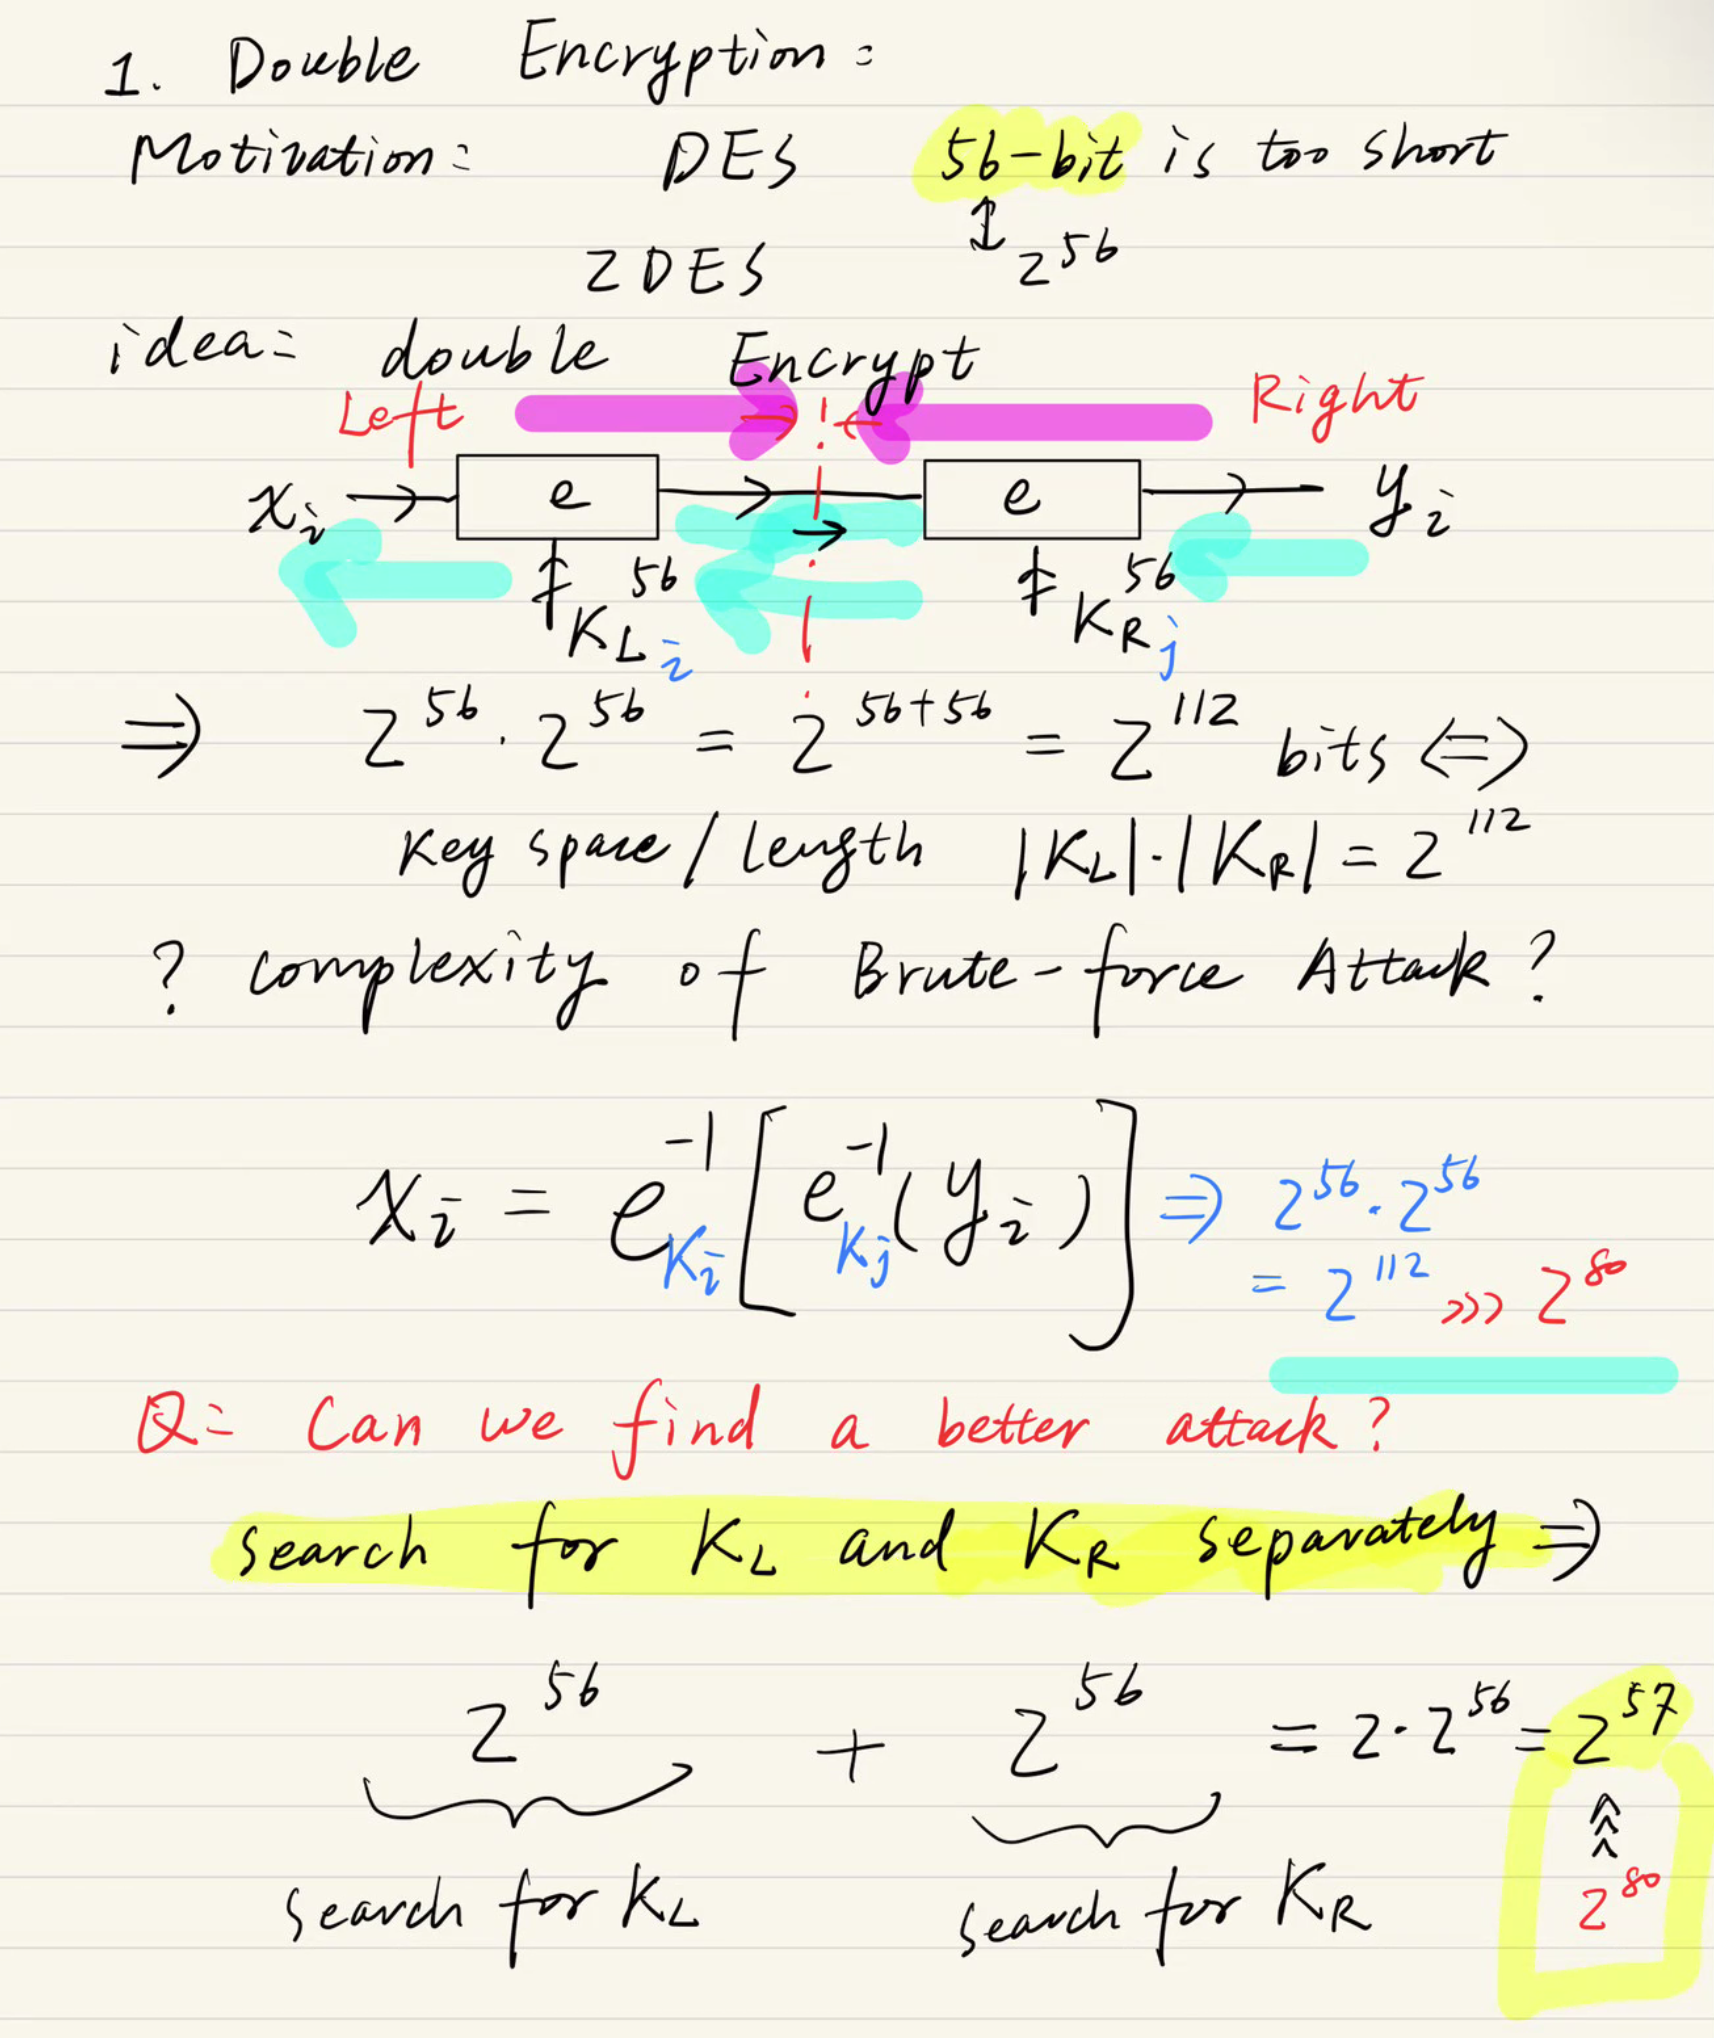 1. Double Encryption:
Motivation: DES 56-bit is too short
↕ 2^56
2DES
idea: double Encrypt
Left → ← Right
x_i → e → e → y_i
K_L i 56 K_R j 56
⇒ 2^56 · 2^56 = 2^56+56 = 2^112 bits ⇔
Key space / length |K_L| · |K_R| = 2^112
? complexity of Brute-force Attack ?
x_i = e^-1_Ki [ e^-1_Kj ( y_i ) ] ⇒ 2^56 · 2^56
= 2^112 >>> 2^80
Q: Can we find a better attack?
search for K_L and K_R separately ⇒
2^56 + 2^56 = 2 · 2^56 = 2^57
^^^
2^80
search for K_L search for K_R